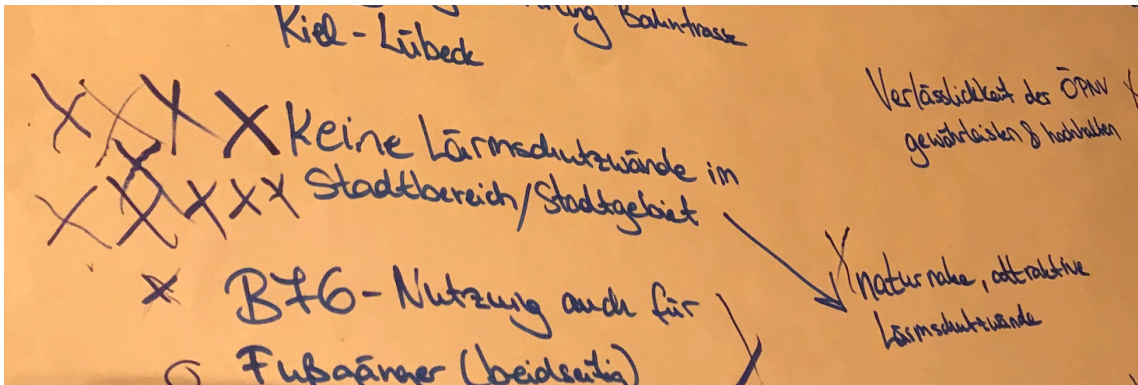 Bahntrasse
Kiel - Lübeck
Keine Lärmschutzwände im
Stadtbereich/Stadtgebiet
B76 - Nutzung auch für
Fußgänger (beidseitig)
Verlässlichkeit des ÖPNV
gewährleisten & hochhalten
naturnahe, attraktive
Lärmschutzwände